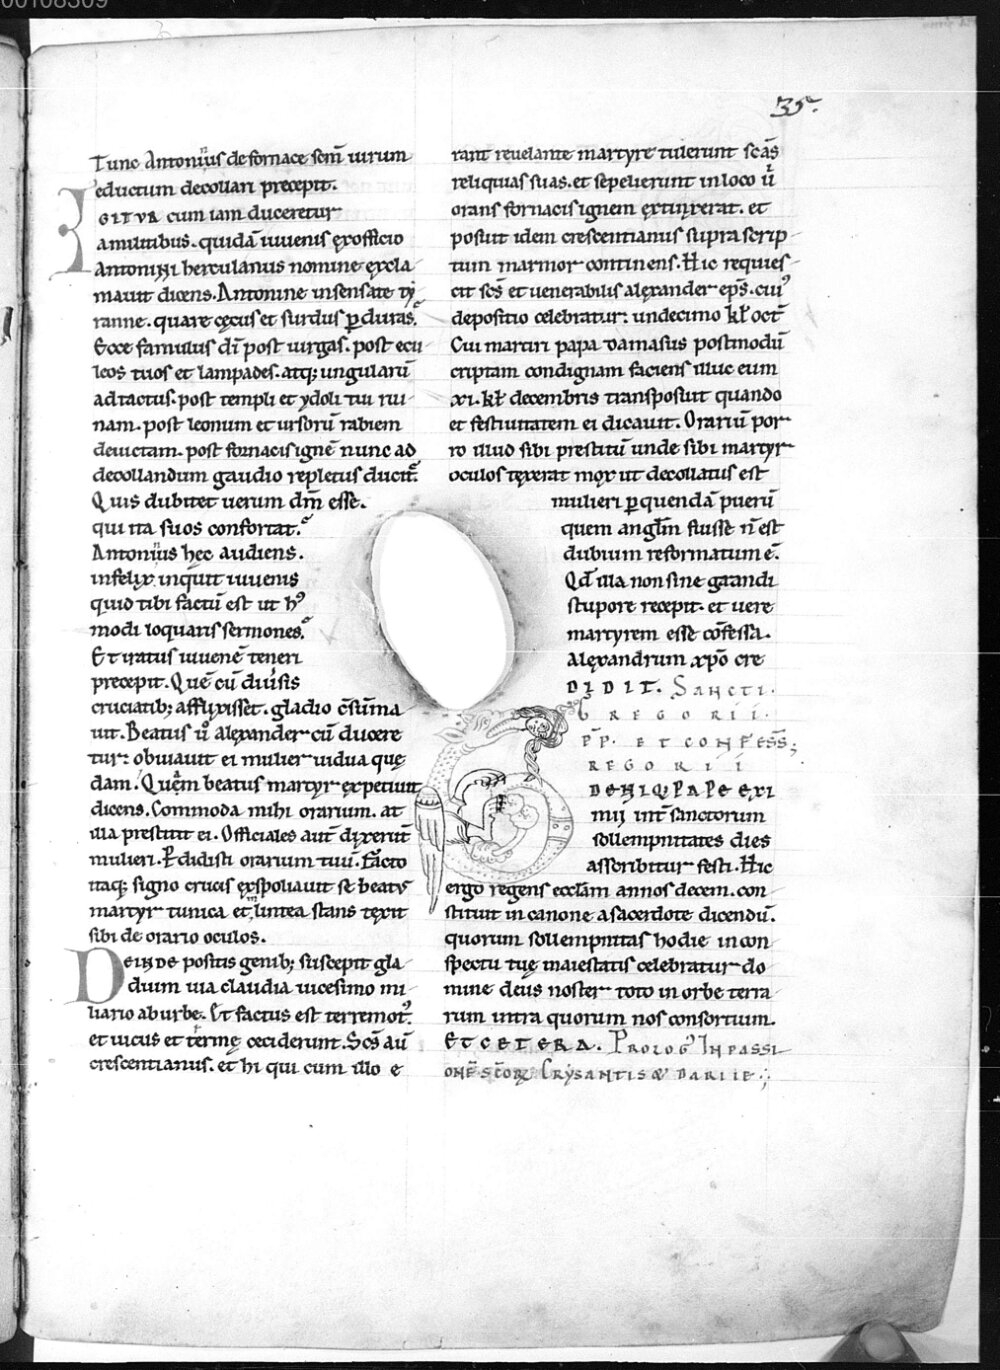 00108309
35.
Tunc Antoninus de fornace sem̄ uirum
eductum decollari precepit.
IGITVR cum iam duceretur
a militibus. quidā iuuenis ex officio
Antonini herculanus nomine excla
mauit dicens. Antonine insensate ty
ranne. quare cęcus et surdus ꝑduras.
Ecce famulus dī post uirgas. post ecu
leos tuos et lampades. atq; ungularū
ad tactus. post templi et ydoli tui rui
nam. post leonum et ursorū rabiem
deuictam. post fornacis ignē nunc ad
decollandum gaudio repletus ducit᷑.
Quis dubitet uerum dm̄ esse.
qui ita suos confortat.
Antoninus hec audiens.
infelix inquit iuuenis
quid tibi factū est ut hꝰ
modi loquaris sermones.
Et iratus iuuenē teneri
precepit. Quē cū diuersis
cruciatib; afflixisset. gladio c̄suma
uit. Beatus u̇ alexander cū ducere
tur: obuiauit ei mulier uidua quę
dam. Quęm beatus martyr expetiuit
dicens. Commoda mihi orarium. at
illa prestitit ei. Officiales aut̄ dixerūt
mulieri. Ꝑdidisti orarium tuū. Facto
itaq; signo crucis exspoliauit se beatꝰ
martyr tunica et lintea stans texit
sibi de orario oculos.
DEINDE positis genib; suscepit gla
dium uia claudia uicesimo mi
liario ab urbe. Et factus est terremotꝰ.
et uicus et termę ceciderunt. Scs̄ aū
crescentianus. et hi qui cum illo e
rant reuelante martyre tulerunt scās
reliquias suas. et sepelierunt in loco u̇
orans fornacis ignem extinxerat. et
posuit idem crescentianus supra scrip
tum marmor continens. Hic requies
cit scs̄ et uenerabilis alexander eps̄. cuiꝰ
depositio celebratur: undecimo kł oct̄
Cui martiri papa damasus postmodū
criptam condignam faciens illuc eum
xi. kł decembris transposuit quando
et festiuitatem ei dicauit. Orariū por
ro illud sibi prestitū unde sibi martyr
oculos texerat mox ut decollatus est
mulieri ꝑ quendā puerū
quem angl̄m fuisse n̄ est
dubium reformatum ē.
Qd̄ illa non sine grandi
stupore recepit. et uere
martyrem esse cōfessa.
Alexandrum xp̄o cre
DIDIT. SANCTI.
GREGORII.
P̄P. ET CONFESS̄;
REGORII
DENIQ PAPE EXI
mij int̄ sanctorum
sollempnitates dies
asscribitur festi. Hic
ergo regens ecclām annos decem. con
stituit in canone a sacerdote dicendū.
quorum sollempnitas hodie in con
spectu tuę maiestatis celebratur do
mine deus noster toto in orbe terra
rum intra quorum nos consortium.
ET CETERA. PROLOGꝰ IN PASSI
ONĒ SC̄ORꝜ CRYSANTIS & DARIIE.;